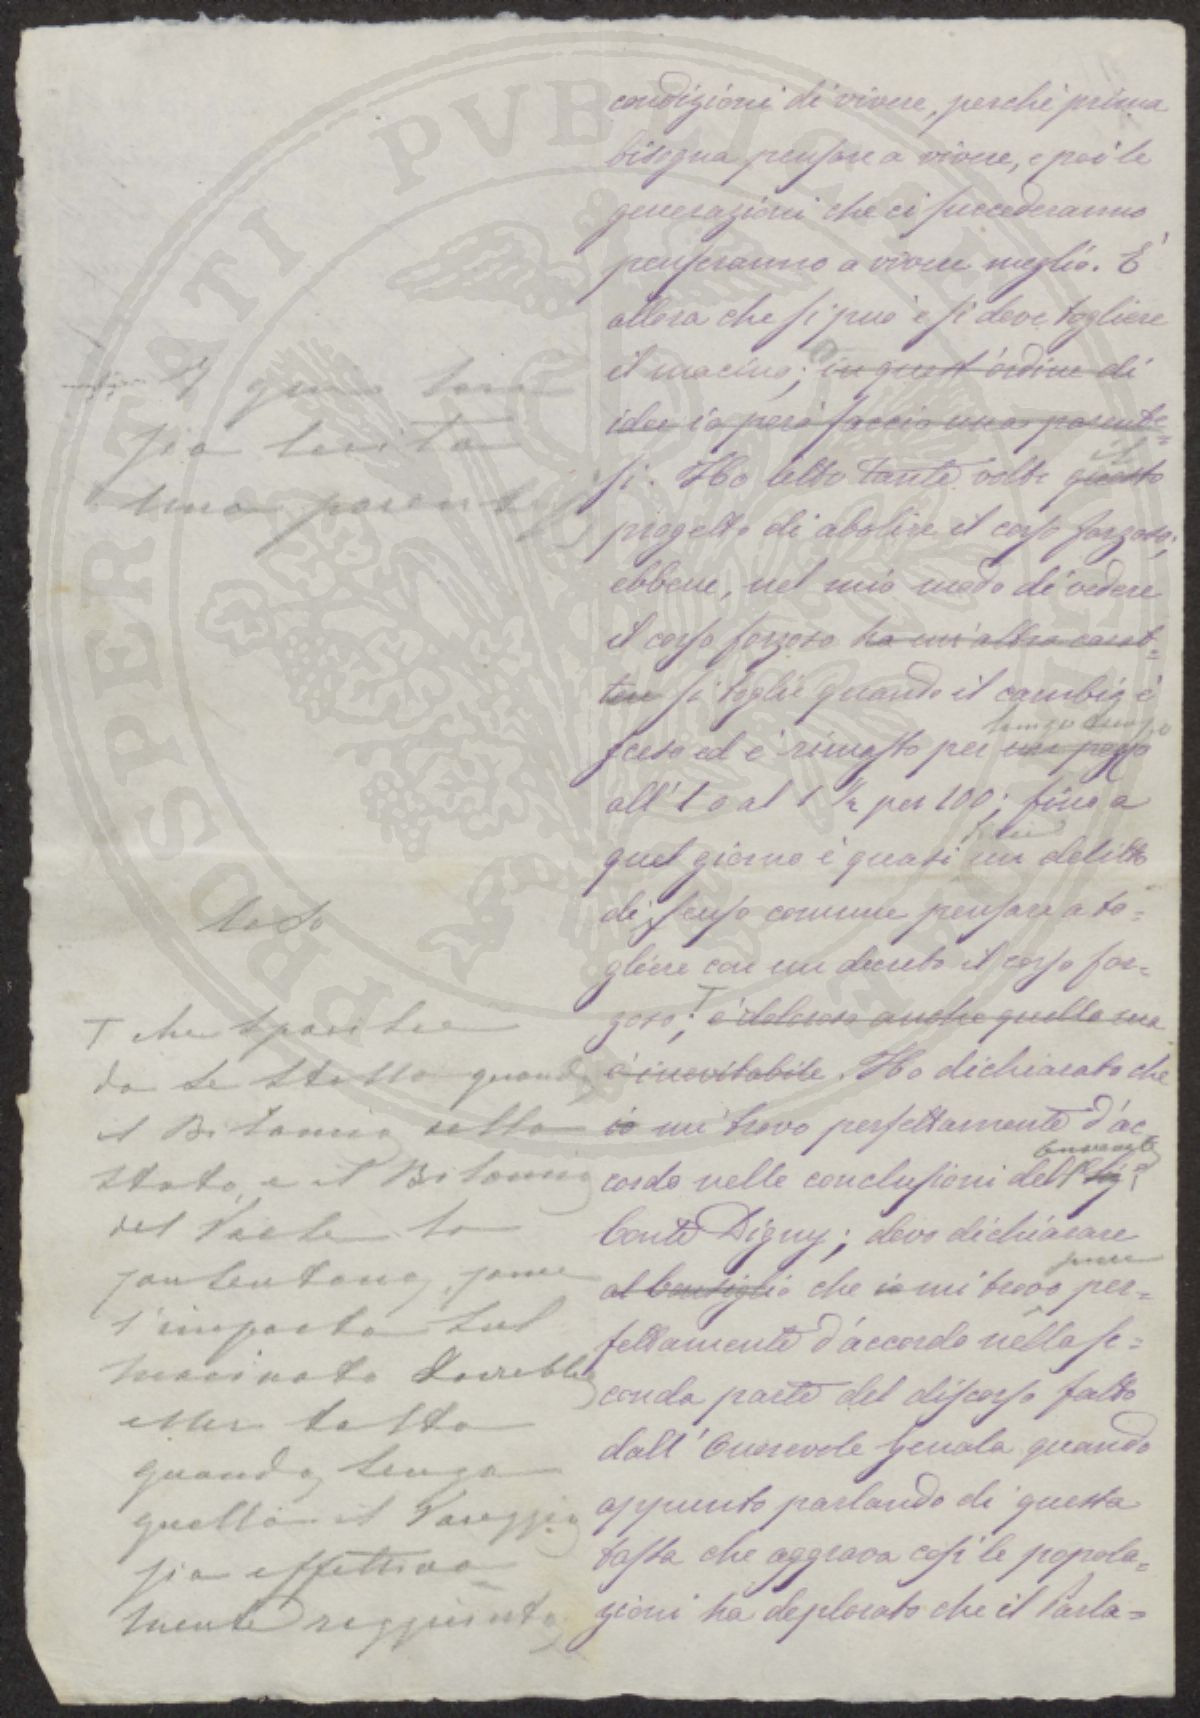 condizioni di vivere, perchè prima
bisogna pensare a vivere, e poi le
generazioni che ci succederanno
penseranno a vivere meglio. È
allora che si può e si deve togliere
il macino; in quest'ordine di
idee io però faccio una parente=
si. Ho letto tante volte questo
il
progetto di abolire il corso forzoso;
ebbene, nel mio modo di vedere
il corso forzoso ha un'altro carat=
tere si toglie quando il cambio è
sceso ed è rimasto per un pezzo
lungo tempo
all'1 o al 1 ½ per 100; fino a
quel giorno è quasi un delitto
di senso comune pensare a to=
gliere con un decreto il corso for=
zoso; T è doloroso anche quello ma
è inevitabile. Ho dichiarato che
io mi trovo perfettamente d'ac
cordo nelle conclusioni del Sig.r
Onorevole
Conte Digny; devo dichiarare
al Consiglio che io mi trovo per=
pure
fettamente d'accordo nella se=
conda parte del discorso fatto
dall'Onorevole Genala quando
appunto parlando di questa
tassa che aggrava così le popola=
zioni ha deplorato che il Parla=
sia lecita
una parentesi
T che sparisce
da se stesso quando
il Bilancio dello
Stato, e il Bilancio
del Paese lo
consentono, come
l'imposta sul
macinato dovrebbe
esser tolta
quando, senza
quella il Pareggio
sia effettiva
mente raggiunto
PROSPERITATI PUBLICAE